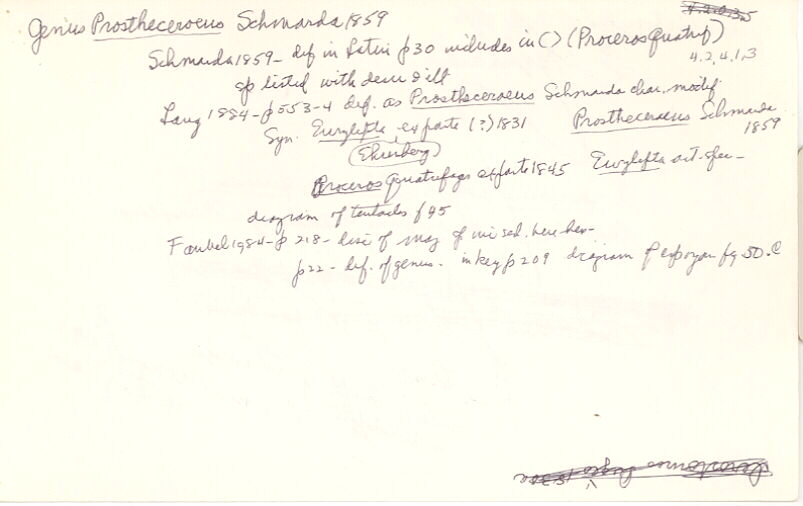 Genus Prostheceraeus Schmarda 1859
Schmarda 1859 - def in Latin p30 includes in () (Proceros Quatref)
4.2.4.1.3
sp listed with desc & ill
Lang 1884 - p553-4 def. as Prostheceraeus Schmarda char. modif
Syn. Eurylepta ex parte (?) 1831 Prostheceraeus Schmarda 1859
(Ehrenberg)
Proceros Quatrefages ex parte 1845 Eurylepta
diagram of tentacles f 95
Faubel 1984 - p 218 - list of
p22 - def. of genus - in key p209 diagram of fig 50.C